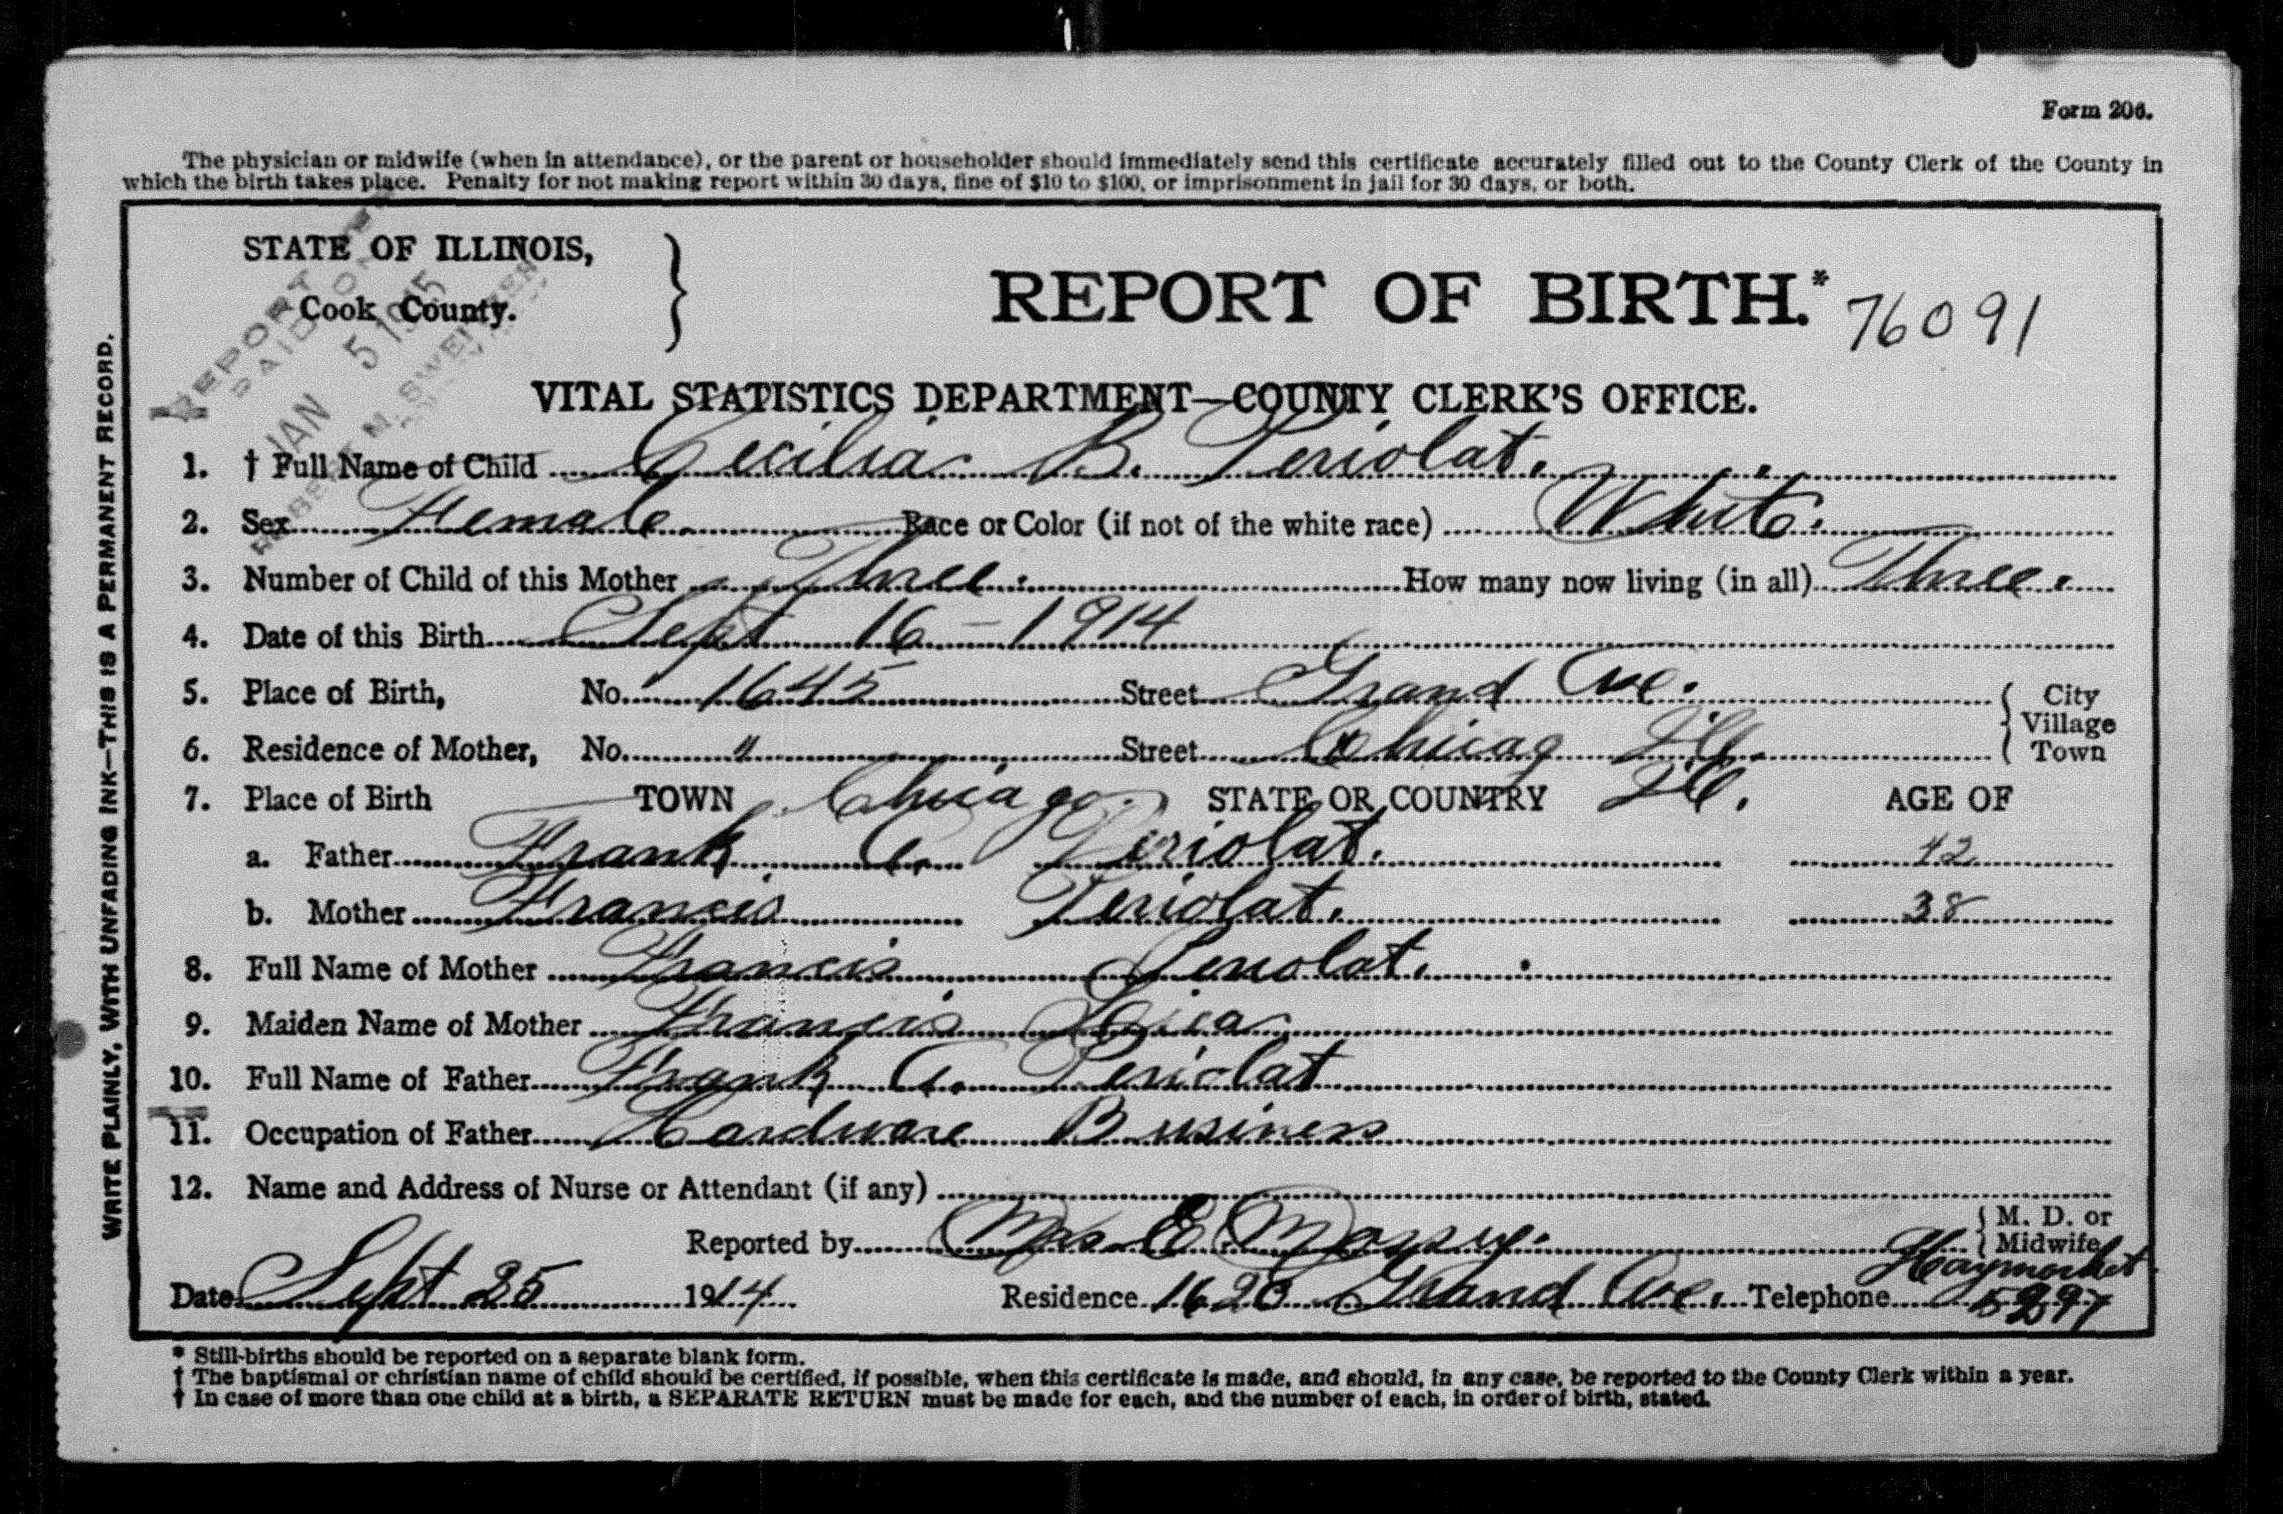 Form 206.
The physician or midwife (when in attendance), or the parent or householder should immediately send this certificate accurately filled out to the County Clerk of the County in
which the birth takes place. Penalty for not making report within 30 days, fine of $10 to $100, or imprisonment in jail for 30 days, or both.
STATE OF ILLINOIS,
Cook County.
REPORT
PAID ON
JAN 5 1915
ROBERT M. SWEITZER
REPORT OF BIRTH.* 76091
VITAL STATISTICS DEPARTMENT—COUNTY CLERK'S OFFICE.
1. † Full Name of Child Cecilia B. Periolat.
2. Sex Female Race or Color (if not of the white race) White.
3. Number of Child of this Mother Three. How many now living (in all) Three.
4. Date of this Birth Sept 16 - 1914
5. Place of Birth, No. 1645 Street Grand Ave. { City
6. Residence of Mother, No. " Street Chicago Ill. { Village Town
7. Place of Birth TOWN Chicago. STATE OR COUNTRY Ill. AGE OF
a. Father Frank C. Periolat. 42
b. Mother Francis Periolat. 38
8. Full Name of Mother Francis Periolat.
9. Maiden Name of Mother Francis
10. Full Name of Father Frank C. Periolat
11. Occupation of Father Hardware Business
12. Name and Address of Nurse or Attendant (if any)
Reported by Mrs E { M. D. or Midwife
Date Sept 25 1914 Residence 1623 Grand Ave. Telephone Haymarket
WRITE PLAINLY, WITH UNFADING INK—THIS IS A PERMANENT RECORD.
* Still-births should be reported on a separate blank form.
† The baptismal or christian name of child should be certified, if possible, when this certificate is made, and should, in any case, be reported to the County Clerk within a year.
† In case of more than one child at a birth, a SEPARATE RETURN must be made for each, and the number of each, in order of birth, stated.